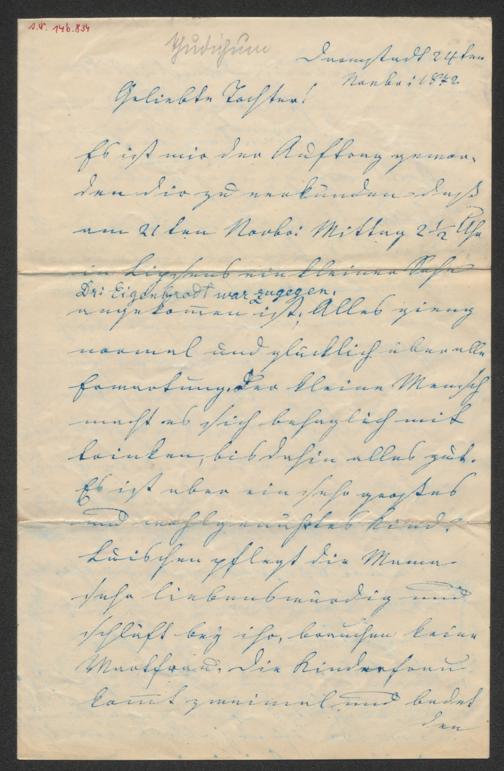 A.V. 146.834
Thudichum
Darmstadt 24ten
Novbr: 1872
Geliebte Tochter!
Es ist mir der Auftrag gewor-
den dir zu verkünden daß
am 21ten Novbr: Mittag 2 1/2 Uhr
in ein kleiner Sohn
Dr: Eigenbrodt war zugegen.
angekommen ist, Alles gieng
normal und glücklich über alle
Erwartung. Der kleine Mensch
macht es sich behaglich mit
trinken, bis dahin alles gut.
Es ist aber ein sehr großes
und wohlgenährtes Kind.
Luischen pflegt die Mama
sehr liebenswürdig und
schläft bey ihr, brauchen keine
Wartfrau. Die Kinderfrau
kommt zweimal und badet
den